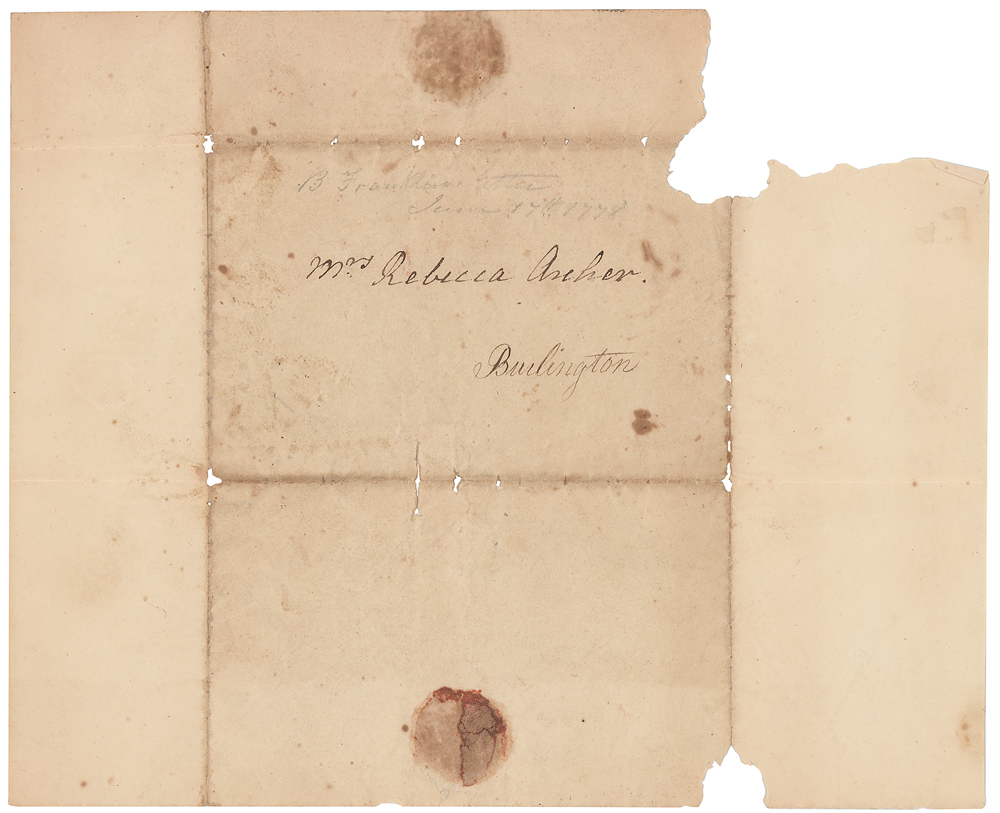 B Franklins letter
June 17th 1778
Mrs Rebecca Archer.
Burlington